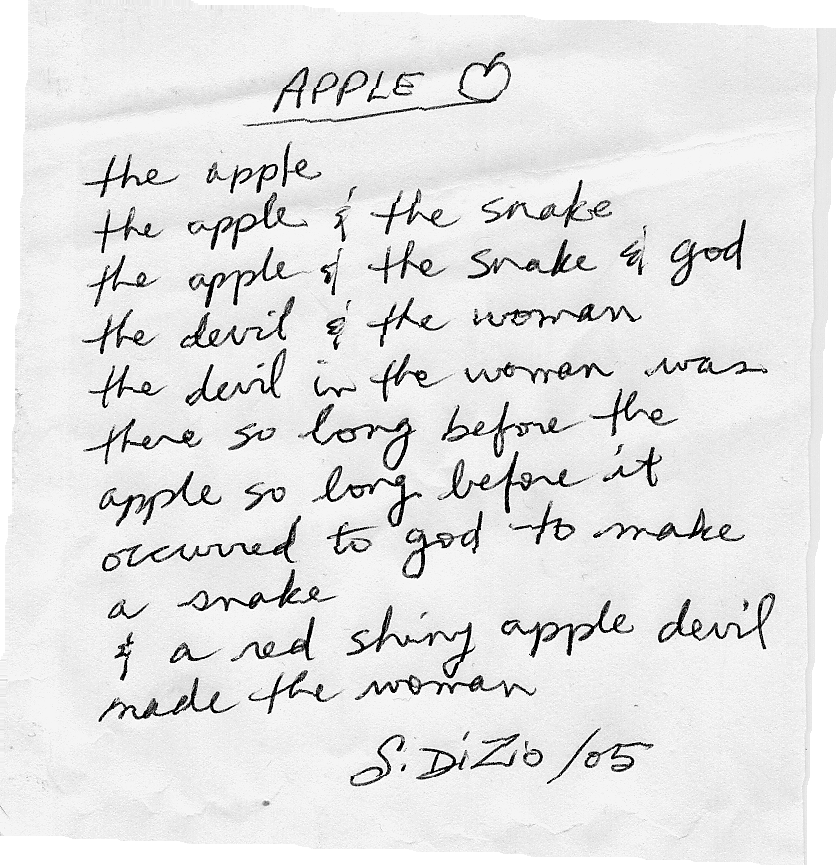 APPLE
the apple
the apple & the snake
the apple & the snake & god
the devil & the woman
the devil in the woman was
there so long before the
apple so long before it
occurred to god to make
a snake
& a red shiny apple devil
made the woman
S. DiZio /05